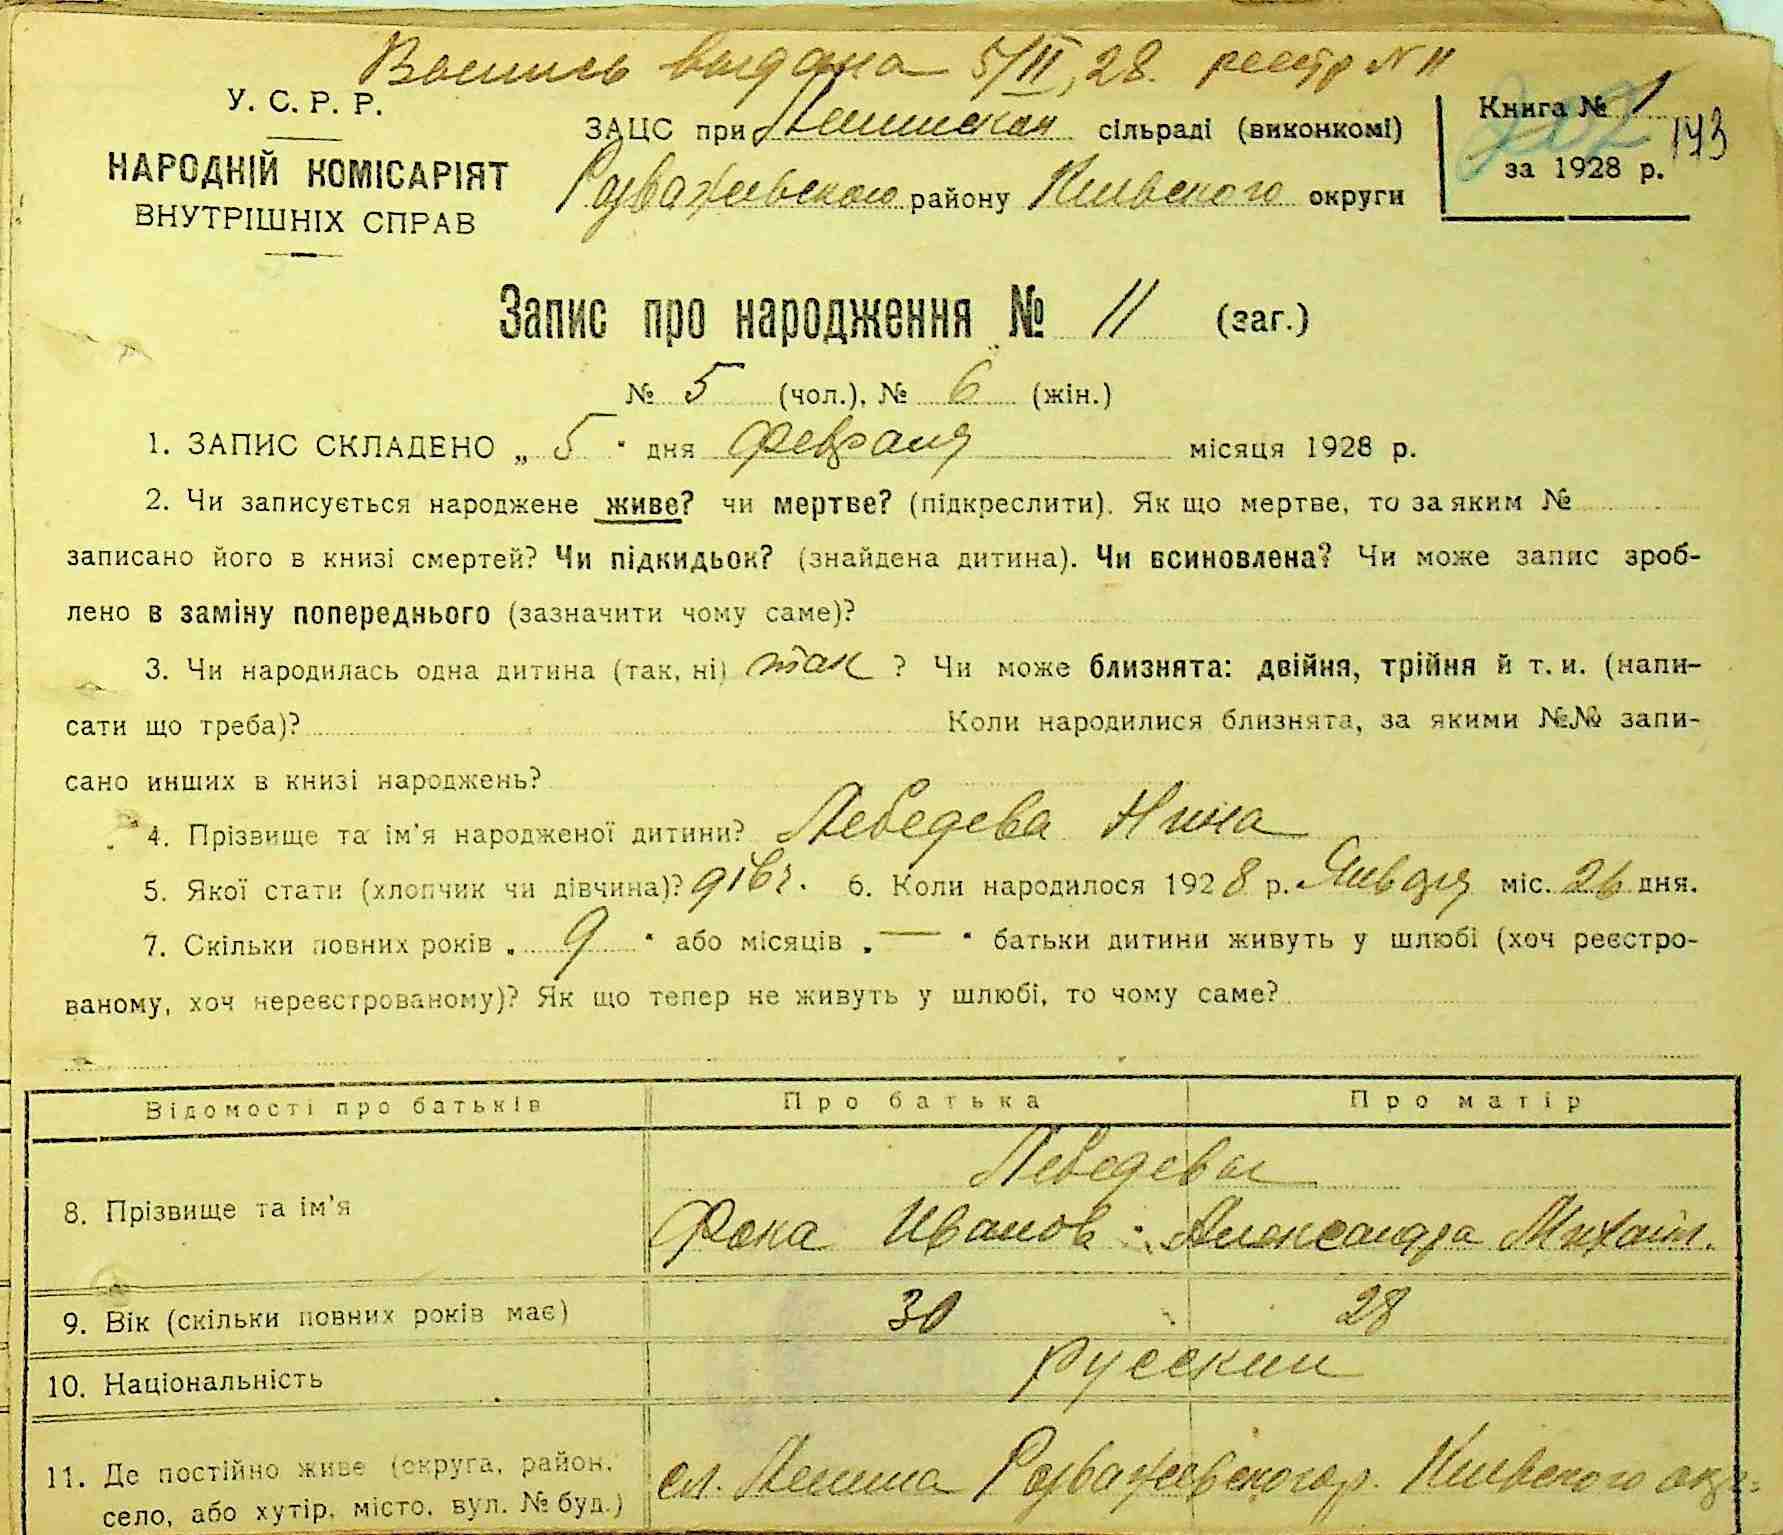 Выпись выдана 5/II, 28. реестр N 11
У. С. Р. Р.
НАРОДНІЙ КОМІСАРІЯТ
ВНУТРІШНІХ СПРАВ
ЗАЦС при Ленинской сільраді (виконкомі)
Розважевского району Киевского округи
Книга № 1
143
за 1928 р.
Запис про народження № 11 (заг.)
№ 5 (чол.), № 6 (жін.)
1. ЗАПИС СКЛАДЕНО „ 5 " дня Февраля місяця 1928 р.
2. Чи записується народжене живе? чи мертве? (підкреслити). Як що мертве, то за яким №
записано його в книзі смертей? Чи підкидьок? (знайдена дитина). Чи всиновлена? Чи може запис зроб-
лено в заміну попереднього (зазначити чому саме)?
3. Чи народилась одна дитина (так, ні) так ? Чи може близнята: двійня, трійня й т. и. (напи-
сати що треба)? Коли народилися близнята, за якими №№ запи-
сано инших в книзі народжень?
4. Прізвище та ім'я народженої дитини? Лебедева Нина
5. Якої стати (хлопчик чи дівчина)? дівч. 6. Коли народилося 1928 р. Января міс. 26 дня.
7. Скільки повних років „ 9 " або місяців „ — " батьки дитини живуть у шлюбі (хоч реєстро-
ваному, хоч нереєстрованому)? Як що тепер не живуть у шлюбі, то чому саме?
Відомості про батьків Про батька Про матір
Лебедевы
8. Прізвище та ім'я Фока Иванов. Александра Михайл.
9. Вік (скільки повних років має) 30 28
10. Національність Русский
11. Де постійно живе (округа, район, сл. Ленина Розважевского р. Киевского окр.
село, або хутір, місто, вул. № буд.)